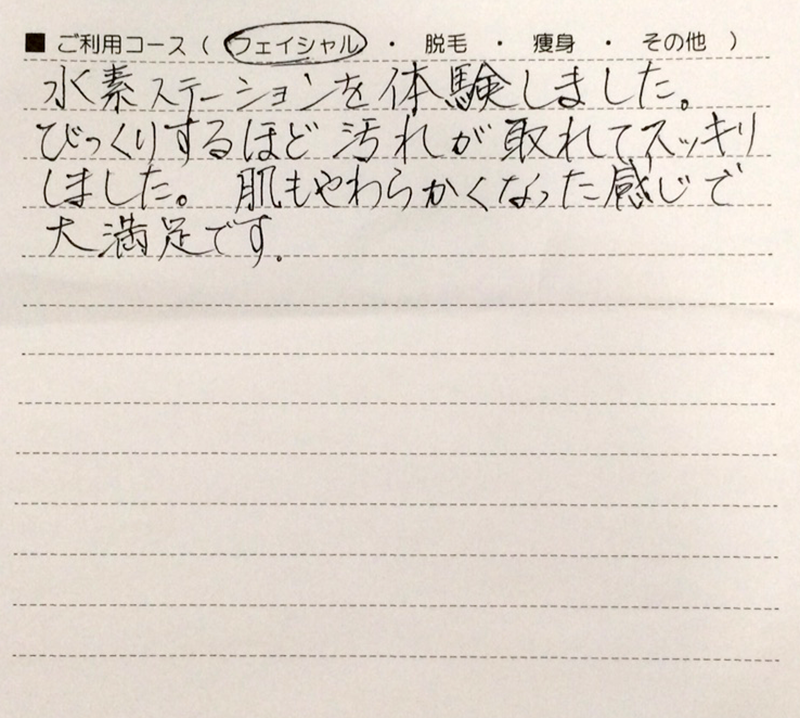 ■ ご利用コース ( フェイシャル ・ 脱毛 ・ 痩身 ・ その他 )
水素ステーションを体験しました。
びっくりするほど汚れが取れてスッキリ
しました。肌もやわらかくなった感じで
大満足です.